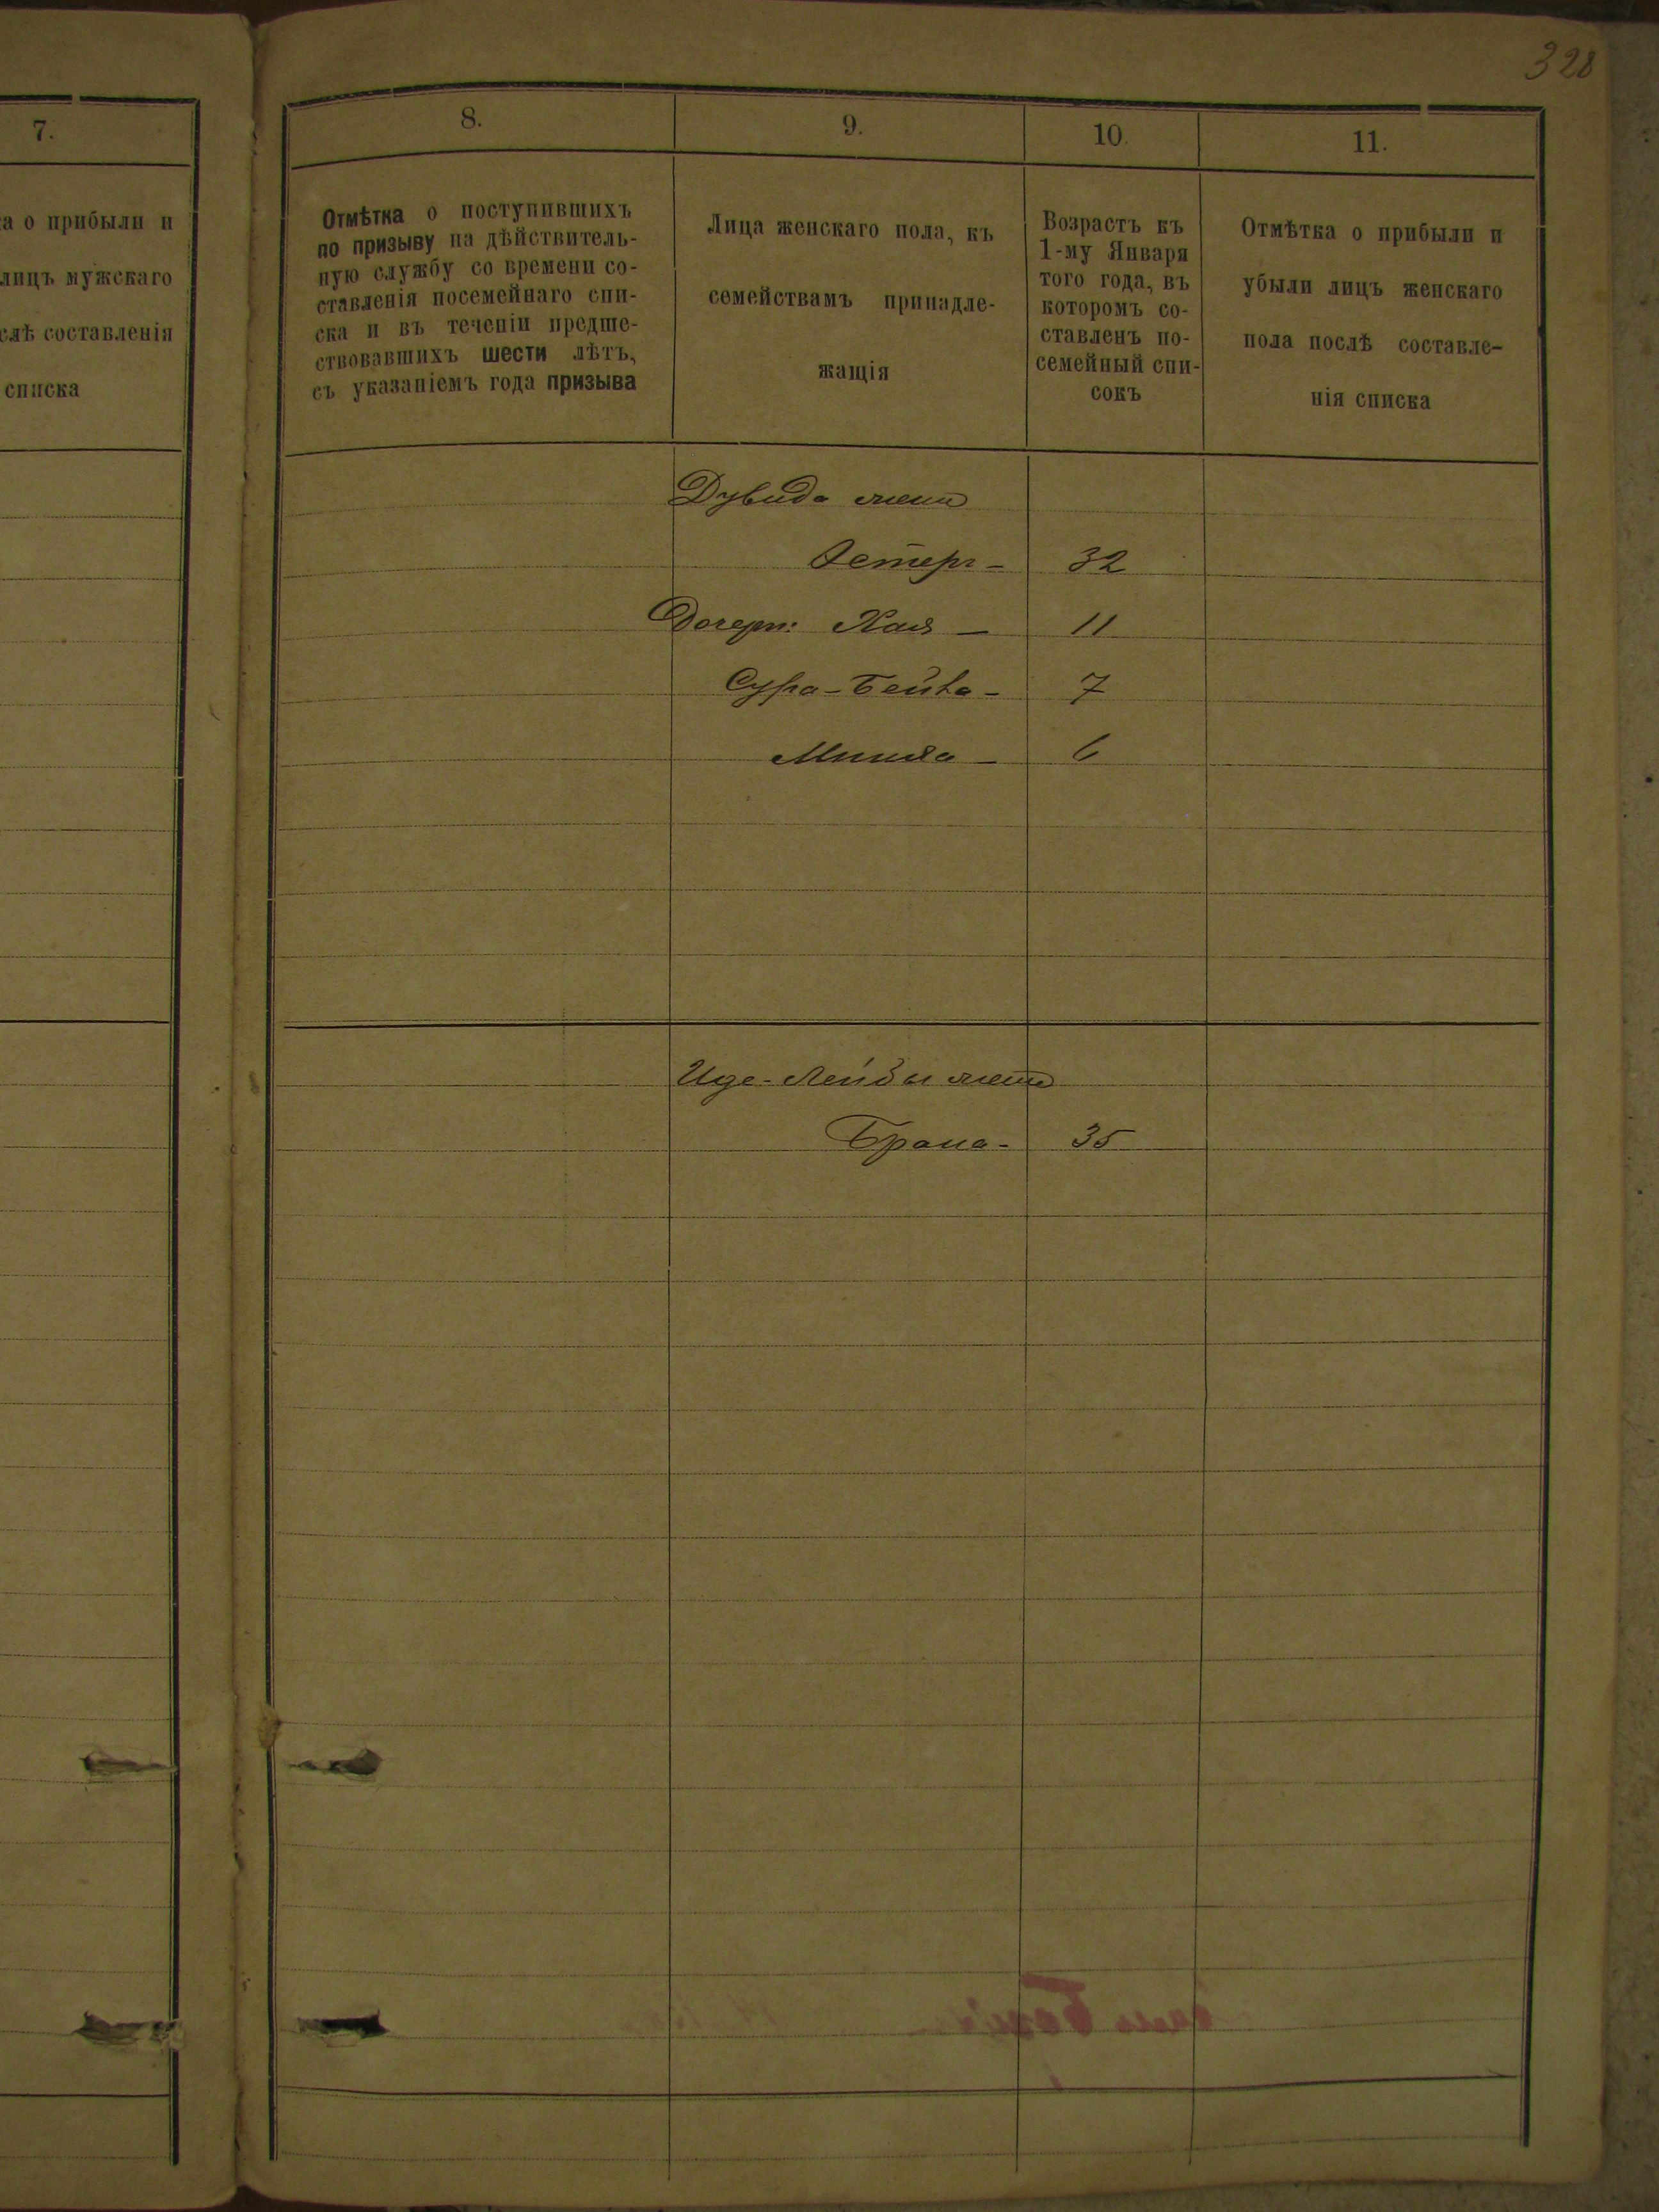 328
7.
а о прибыли и
лицъ мужскаго
слѣ составленія
списка
8.
9.
10.
11.
Отмѣтка о поступившихъ
по призыву на дѣйствитель-
ную службу со времени со-
ставленія посемейнаго спи-
ска и въ теченіи предше-
ствовавшихъ шести лѣтъ,
съ указаніемъ года призыва
Лица женскаго пола, къ
семействамъ принадле-
жащія
Возрастъ къ
1-му Января
того года, въ
которомъ со-
ставленъ по-
семейный спи-
сокъ
Отмѣтка о прибыли и
убыли лицъ женскаго
пола послѣ составле-
нія списка
Дувида жена
Эстеръ - 32
Дочери: Хая - 11
Сура-Бейла - 7
6
Иде-Лейбы жена
Брана - 35